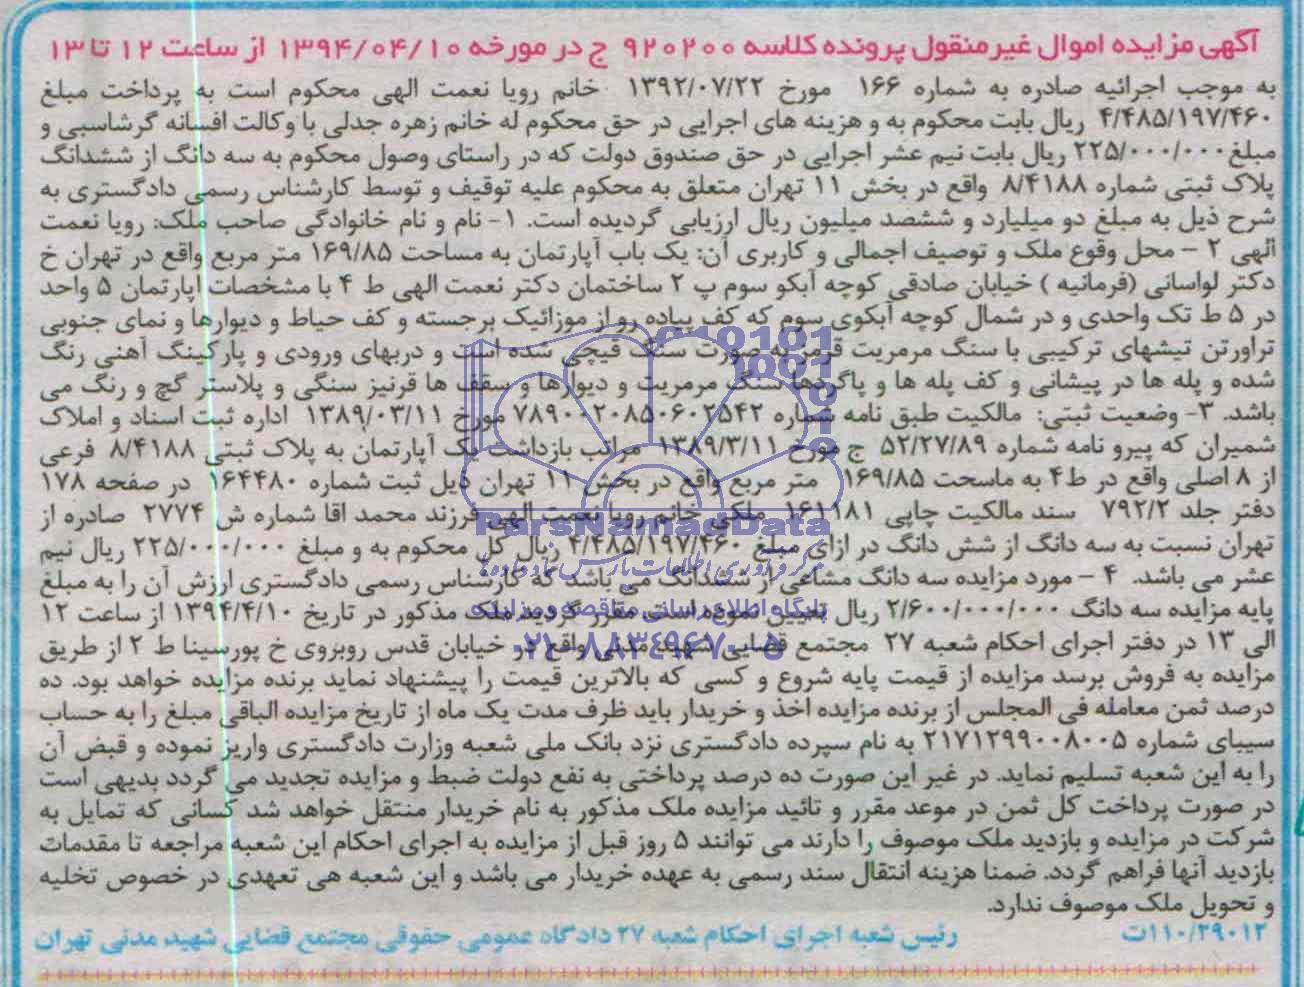 آگهی مزایده اموال غیرمنقول پرونده کلاسه ۹۲۰۲۰۰ ج در مورخه ۱۳۹۴/۰۴/۱۰ از ساعت ۱۲ تا ۱۳
به موجب اجرائیه صادره به شماره ۱۶۶ مورخ ۱۳۹۲/۰۷/۲۲ خانم رویا نعمت الهی محکوم است به پرداخت مبلغ
۴/۴۸۵/۱۹۷/۴۶۰ ریال بابت محکوم به و هزینه های اجرایی در حق محکوم له خانم زهره جدلی با وکالت افسانه گرشاسبی و
مبلغ ۲۲۵/۰۰۰/۰۰۰ ریال بابت نیم عشر اجرایی در حق صندوق دولت که در راستای وصول محکوم به سه دانگ از ششدانگ
پلاک ثبتی شماره ۸/۴۱۸۸ واقع در بخش ۱۱ تهران متعلق به محکوم علیه توقیف و توسط کارشناس رسمی دادگستری به
شرح ذیل به مبلغ دو میلیارد و ششصد میلیون ریال ارزیابی گردیده است. ۱- نام و نام خانوادگی صاحب ملک: رویا نعمت
الهی ۲ – محل وقوع ملک و توصیف اجمالی و کاربری آن: یک باب آپارتمان به مساحت ۱۶۹/۸۵ متر مربع واقع در تهران خ
دکتر لواسانی (فرمانیه ) خیابان صادقی کوچه آبکو سوم پ ۲ ساختمان دکتر نعمت الهی ط ۴ با مشخصات اپارتمان ۵ واحد
در ۵ ط تک واحدی و در شمال کوچه آبکوی سوم که کف پیاده رو از موزائیک برجسته و کف حیاط و دیوارها و نمای جنوبی
تراورتن تیشهای ترکیبی با سنگ مرمریت قرمز به صورت سنگ قیچی شده است و دربهای ورودی و پارکینگ آهنی رنگ
شده و پله ها در پیشانی و کف پله ها و پاگردها سنگ مرمریت و دیوارها و سقف ها قرنیز سنگی و پلاستر گچ و رنگ می
باشد. ۳- وضعیت ثبتی: مالکیت طبق نامه شماره ۷۸۹۰۰۲۰۸۵۰۶۰۲۵۴۲ مورخ ۱۳۸۹/۰۳/۱۱ اداره ثبت اسناد و املاک
شمیران که پیرو نامه شماره ۵۲/۲۷/۸۹ ج مورخ ۱۳۸۹/۳/۱۱ مراتب بازداشت یک آپارتمان به پلاک ثبتی ۸/۴۱۸۸ فرعی
از ۸ اصلی واقع در ط۴ به ماسحت ۱۶۹/۸۵ متر مربع واقع در بخش ۱۱ تهران ذیل ثبت شماره ۱۶۴۴۸۰ در صفحه ۱۷۸
دفتر جلد ۷۹۲/۲ سند مالکیت چاپی ۱۶۱۱۸۱ ملکی خانم رویا نعمت الهی فرزند محمد اقا شماره ش ۲۷۷۴ صادره از
تهران نسبت به سه دانگ از شش دانگ در ازای مبلغ ۴/۴۸۵/۱۹۷/۴۶۰ ریال کل محکوم به و مبلغ ۲۲۵/۰۰۰/۰۰۰ ریال نیم
عشر می باشد. ۴ – مورد مزایده سه دانگ مشاعی از ششدانگ می باشد که کارشناس رسمی دادگستری ارزش آن را به مبلغ
پایه مزایده سه دانگ ۲/۶۰۰/۰۰۰/۰۰۰ ریال تعیین نموده است. مقرر گردید ملک مذکور در تاریخ ۱۳۹۴/۴/۱۰ از ساعت ۱۲
الی ۱۳ در دفتر اجرای احکام شعبه ۲۷ مجتمع قضایی شهید مدنی واقع در خیابان قدس روبروی خ پورسینا ط ۲ از طریق
مزایده به فروش برسد مزایده از قیمت پایه شروع و کسی که بالاترین قیمت را پیشنهاد نماید برنده مزایده خواهد بود. ده
درصد ثمن معامله فی المجلس از برنده مزایده اخذ و خریدار باید ظرف مدت یک ماه از تاریخ مزایده الباقی مبلغ را به حساب
سیبای شماره ۲۱۷۱۲۹۹۰۰۸۰۰۵ به نام سپرده دادگستری نزد بانک ملی شعبه وزارت دادگستری واریز نموده و قبض آن
را به این شعبه تسلیم نماید. در غیر این صورت ده درصد پرداختی به نفع دولت ضبط و مزایده تجدید می گردد بدیهی است
در صورت پرداخت کل ثمن در موعد مقرر و تائید مزایده ملک مذکور به نام خریدار منتقل خواهد شد کسانی که تمایل به
شرکت در مزایده و بازدید ملک موصوف را دارند می توانند ۵ روز قبل از مزایده به اجرای احکام این شعبه مراجعه تا مقدمات
بازدید آنها فراهم گردد. ضمنا هزینه انتقال سند رسمی به عهده خریدار می باشد و این شعبه هی تعهدی در خصوص تخلیه
و تحویل ملک موصوف ندارد.
۱۱۰/۲۹۰۱۲ت رئیس شعبه اجرای احکام شعبه ۲۷ دادگاه عمومی حقوقی مجتمع قضایی شهید مدنی تهران
ParsNamadData
مرکز فرآوری اطلاعات پارس نماد داده ها
پایگاه اطلاع رسانی مناقصه و مزایده
۰۲۱-۸۸۳۴۹۶۷۰-۵